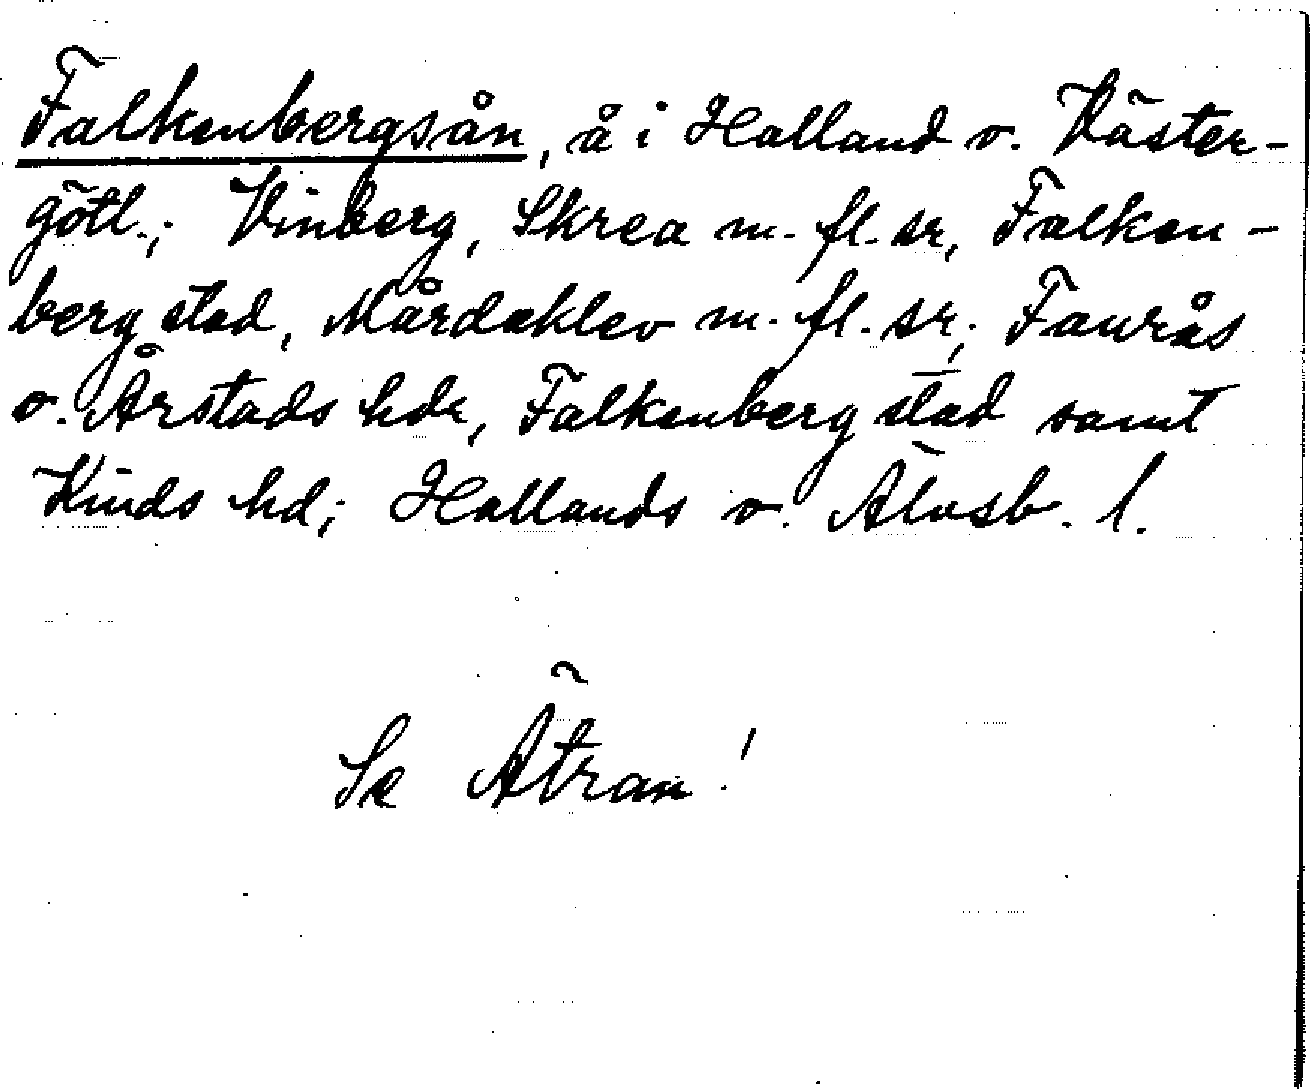 Falkenbergsån, å i Halland o. Väster-
götl.; Vinberg, Skrea m. fl. sr, Falken-
berg stad, Mårdaklev m. fl. sr; Faurås
o. Årstads hdr, Falkenberg stad samt
Kinds hd; Hallands o. Älvsb. l.
Se Ätran!